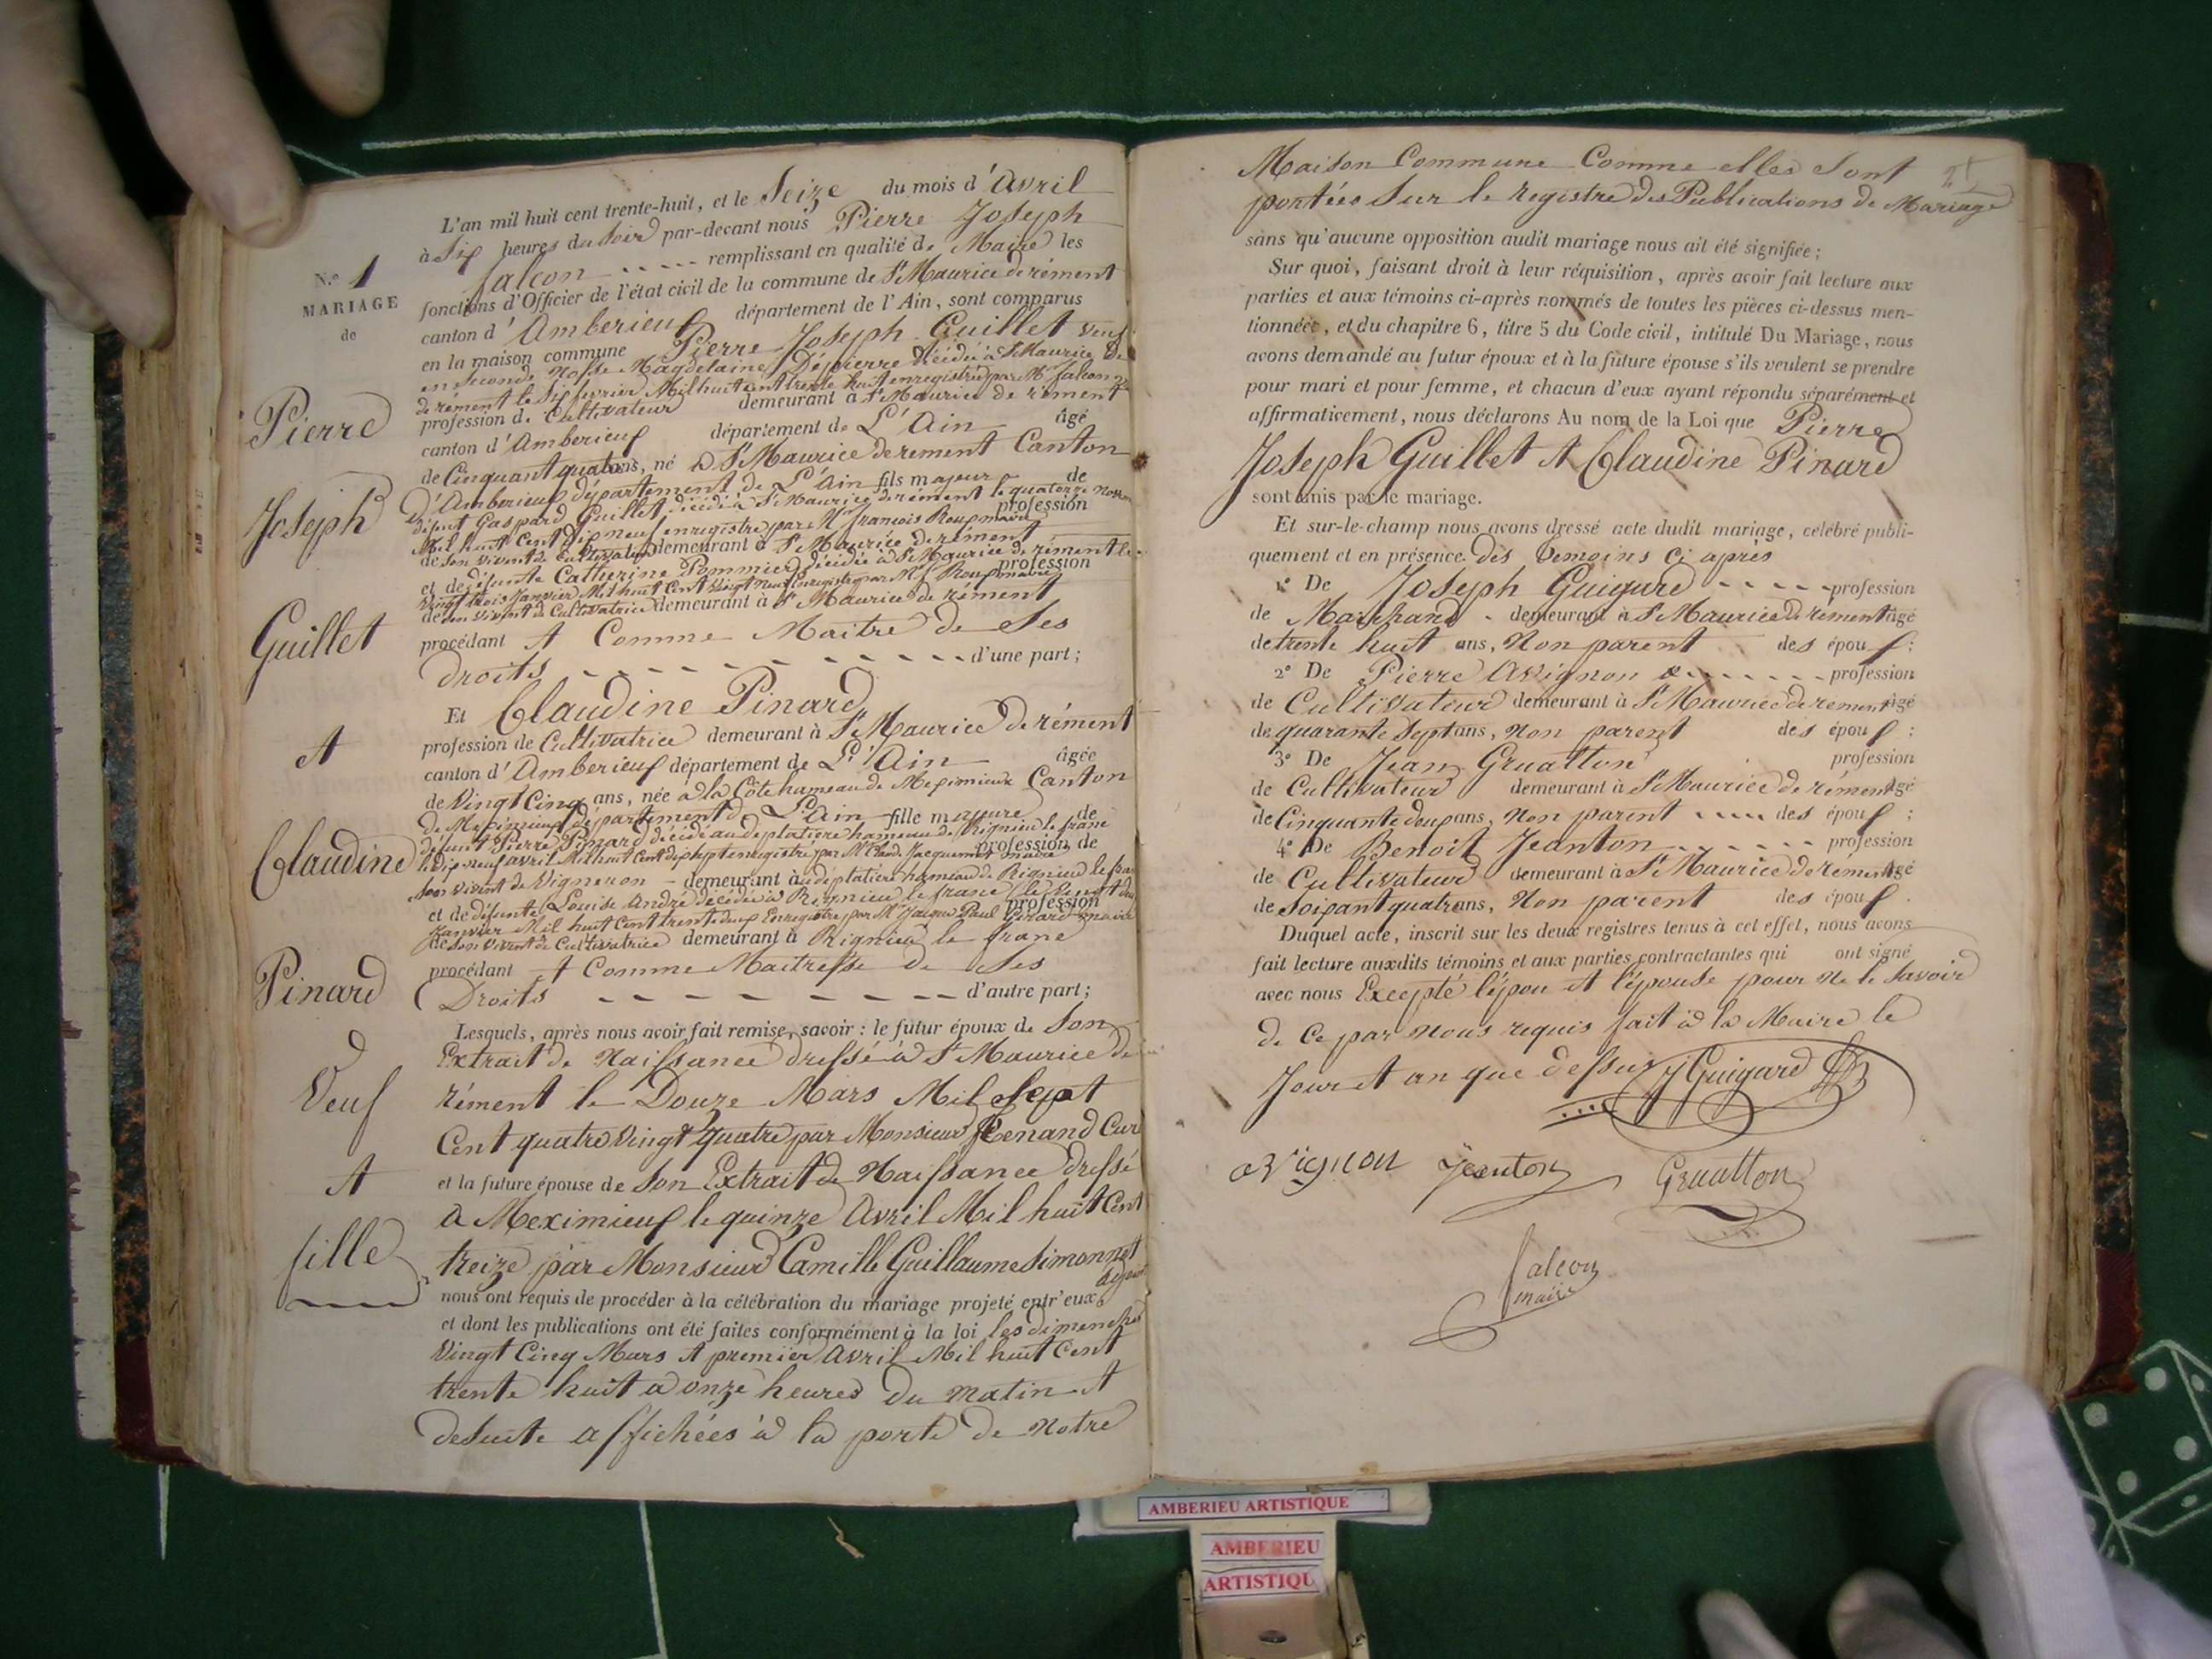 L'an mil huit cent trente-huit, et le Seize du mois d'Avril
à Six heures du Soir par-devant nous Pierre Joseph
falcon remplissant en qualité de Maire les
fonctions d'Officier de l'état civil de la commune de St Maurice de rément
canton d'Amberieux département de l'Ain, sont comparus
en la maison commune Pierre Joseph Guillet veuf
en seconde Nosse Magdelaine Dépierre décédée à St Maurice de
rément le Six fevrier Mil huit cent trente huit enregistré par Mr falcon
profession de Cultivateur demeurant à St Maurice de rément
canton d'Amberieux département de L'Ain âgé
de Cinquant quatr ans, né à St Maurice de rement Canton
D'Amberieux département de L'Ain fils majeur de
défunt Gaspard Guillet décédé à St Maurice de rément le quatorze
Mil huit Cent dix neuf enregistré par Mr francois Roux maire profession
de son vivent de Cultivateur demeurant à St Maurice de rément
et de défunte Catherine Pommier décédée à St Maurice de rément le
vingt trois Janvier Mil huit Cent vingt neuf Enregistré par Mr Roux maire profession
de son vivent de Cultivatrice demeurant à St Maurice de rément
procédant et Comme Maitre de Ses
droits d'une part;
Et Claudine Pinard
profession de Cultivatrice demeurant à St Maurice de rément
canton d'Amberieux département de L'Ain âgée
de Vingt Cinq ans, née à la Côte hameau de Meximieux Canton
de Meximieux département de L'Ain fille majeure de
défunt Pierre Pinard décédé au deplatiere hameau de Rignieu le franc
le dix neuf avril Mil huit Cent dix sept enregistré par Mr Claude Jacquemet maire profession de
son vivent de Vigneron demeurant au deplatiere hameau de Rignieu le franc
et de défunte Louise André décédée à Rignieu le franc le vingt deux
Janvier Mil huit Cent trente deux Enregistré par Mr Jacque Paul Girard maire profession
de son vivent de Cultivatrice demeurant à Rignieu le franc
procédant et Comme Maitresse de Ses
Droits d'autre part;
Lesquels, après nous avoir fait remise, savoir: le futur époux de Son
Extrait de Naissance dressé à St Maurice de
rément le Douze Mars Mil Sept
Cent quatre Vingt quatre par Monsieur Renand Curé
et la future épouse de Son Extrait de Naissance dressé
a Meximieux le quinze Avril Mil huit Cent
treize par Monsieur Camille Guillaume Simonnet
adjoint
nous ont requis de procéder à la célébration du mariage projeté entr'eux
et dont les publications ont été faites conformément à la loi les dimenches
Vingt Cinq Mars et premier Avril Mil huit Cent
trente huit a onze heures du matin et
desuite affichées à la porte de Notre
N.º 1
MARIAGE
de
Pierre
Joseph
Guillet
et
Claudine
Pinard
Veuf
et
fille
Maison Commune Comme elles Sont
portées Sur le registre des Publications de Mariage
sans qu'aucune opposition audit mariage nous ait été signifiée;
Sur quoi, faisant droit à leur réquisition, après avoir fait lecture aux
parties et aux témoins ci-après nommés de toutes les pièces ci-dessus men-
tionnées, et du chapitre 6, titre 5 du Code civil, intitulé Du Mariage, nous
avons demandé au futur époux et à la future épouse s'ils veulent se prendre
pour mari et pour femme, et chacun d'eux ayant répondu séparément et
affirmativement, nous déclarons Au nom de la Loi que Pierre
Joseph Guillet et Claudine Pinard
sont unis par le mariage.
Et sur-le-champ nous avons dressé acte dudit mariage, célébré publi-
quement et en présence des temoins ci après
1º De Joseph Guigard profession
de Marchand demeurant à St Maurice de rément âgé
de trente huit ans, Non parent des époux;
2º De Pierre Avignon profession
de Cultivateur demeurant à St Maurice de rement âgé
de quarante Sept ans, Non parent des époux;
3º De Jean Gruatton profession
de Cultivateur demeurant à St Maurice de rément âgé
de Cinquante doux ans, Non parent des époux;
4º De Benoit Jeanton profession
de Cultivateur demeurant à St Maurice de rément âgé
de Soixant quatr ans, Non parent des époux.
Duquel acte, inscrit sur les deux registres tenus à cet effet, nous avons
fait lecture auxdits témoins et aux parties contractantes qui ont signé
avec nous Excepté l'épou et l'épouse pour ne le Savoir
de Ce par Nous requis fait à la Maire le
Jour et an que dessus J Guigard
avignon Jeanton Gruatton
falcon
maire
AMBERIEU ARTISTIQUE
AMBERIEU
ARTISTIQU